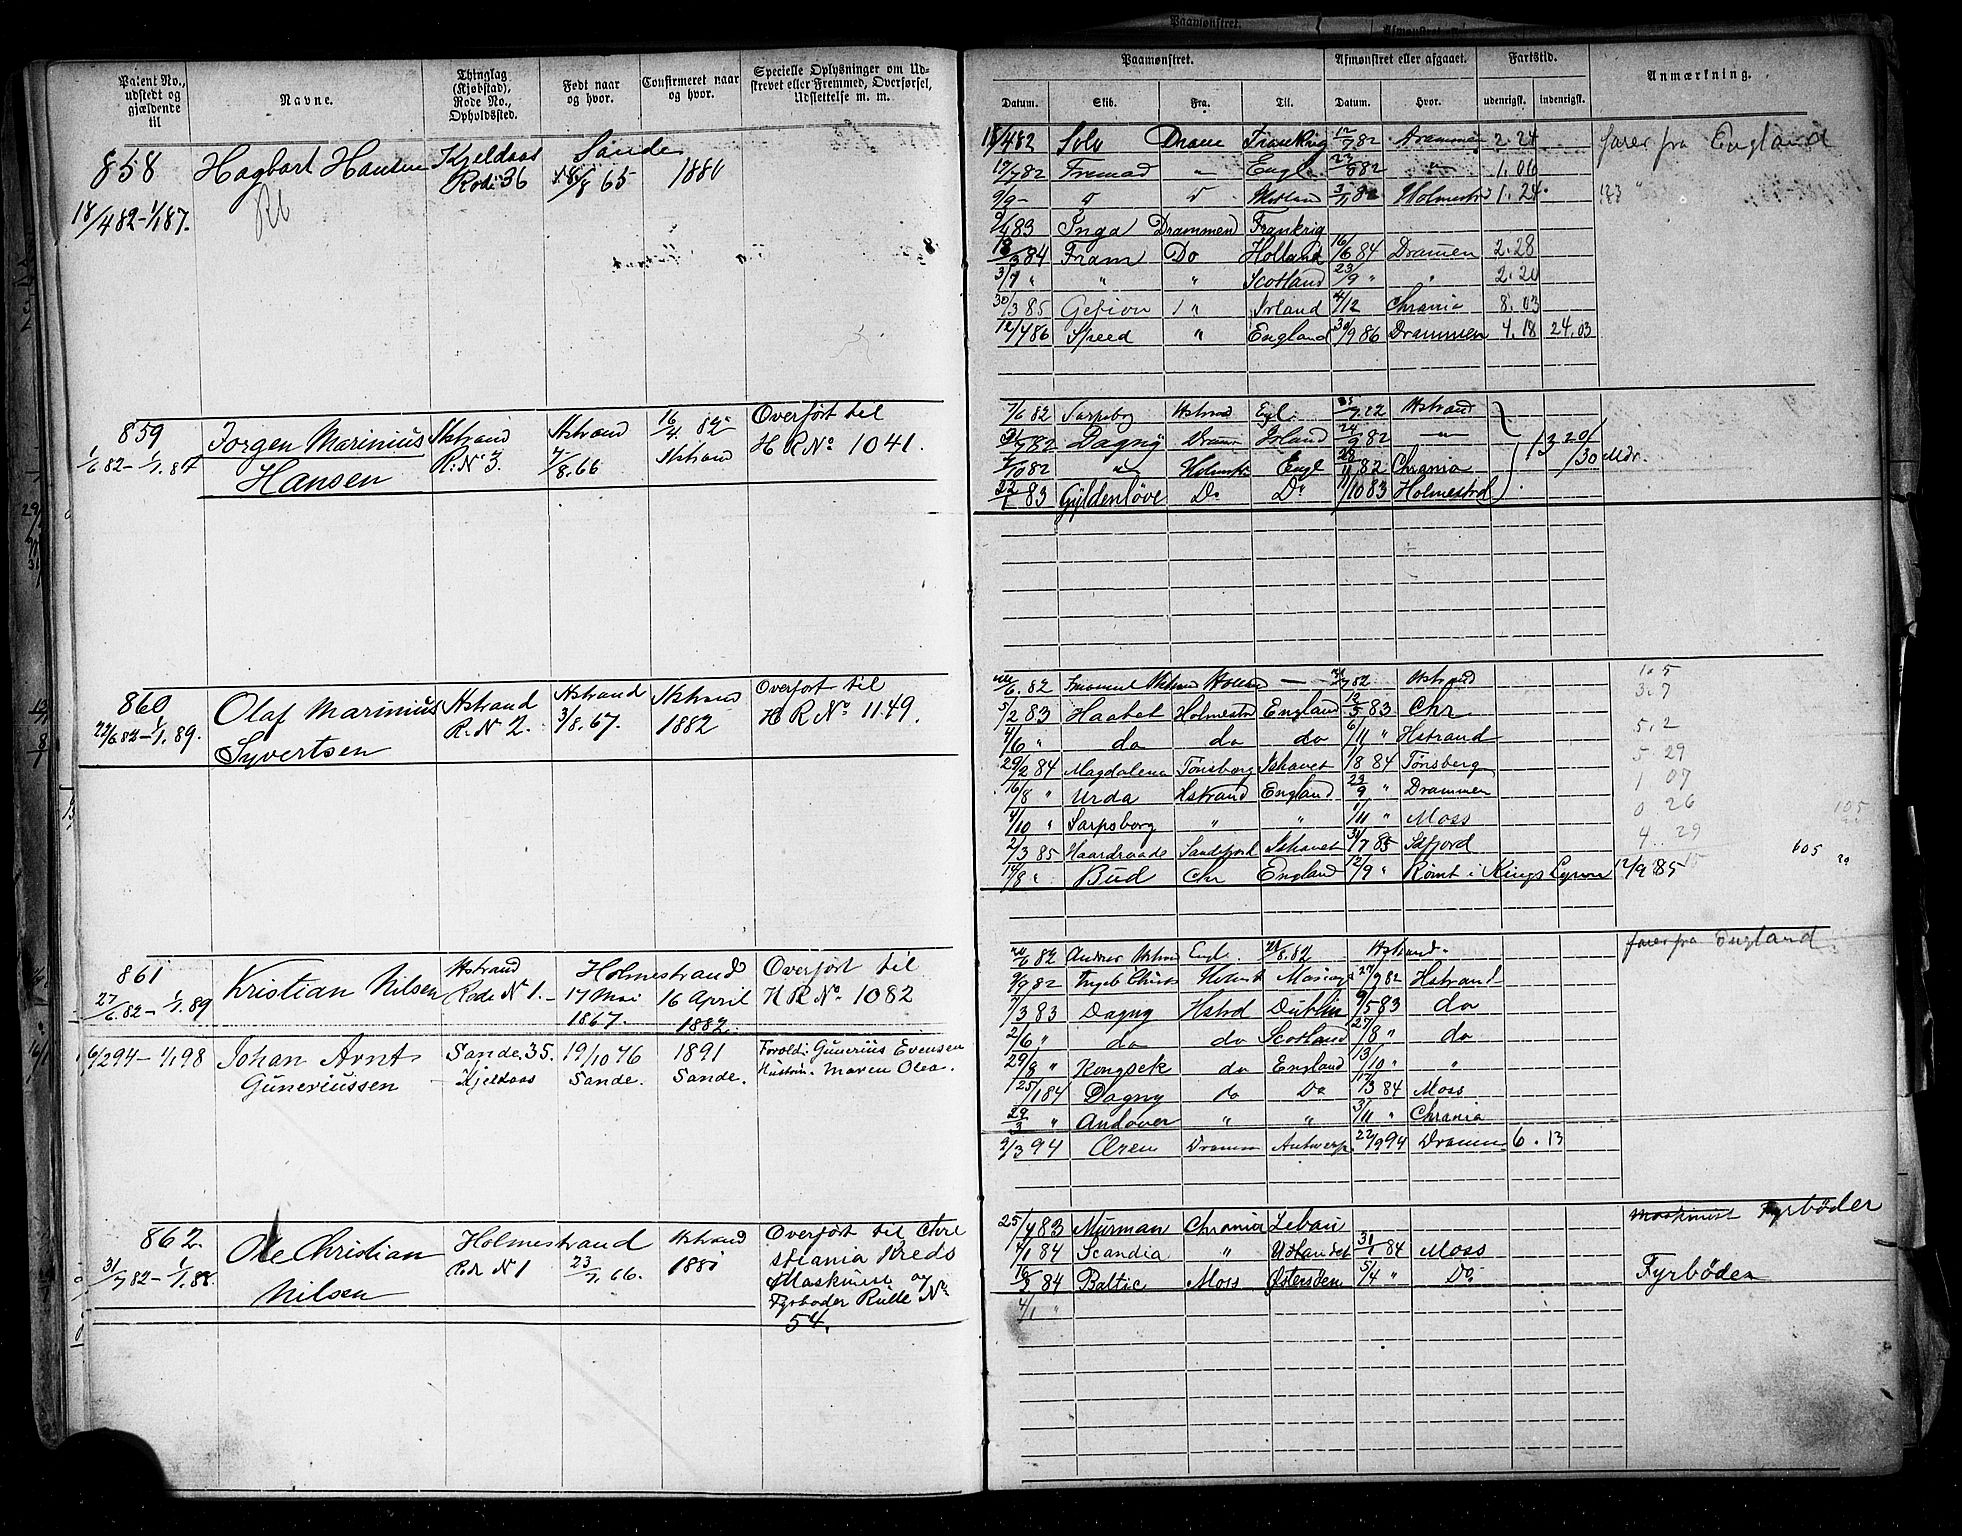 Patent No., udstedt og gjældende til
Navne.
Thinglag (Kjøbstad), Rode No., Opholdssted.
Født naar og hvor.
Confirmeret naar og hvor.
Specielle Oplysninger om Udskrevet eller Fremmed, Overførsel, Udslettelse m. m.
858
18/4 82 – 1/1 87.
Hagbart Hansen
Kjeldaas
Rode 36
Sande
65
1880
859
1/6 82 – 1/1 87
Jørgen Marinius
Hansen
Hstrand
R. No 3.
Hstrand
66
16/4 82
Hstrand
Overført til
H R No. 1041.
860
1/1 89.
Olaf Marinius
Syvertsen
Hstrand
R. No 2.
Hstrand
3/8. 67.
Hstrand
1882
Overfort til
H R No. 1149.
861
27/6 82 – 1/1 89
Kristian Nilsen
Hstrand
Rode N 1.
Holmestrand
17 Mai 16 April
1867. 1882.
Overfört til
H R No. 1082
6/2 94 – 1/1 98
Johan Arnt
Guneriussen
Sande. 35.
Kjeldaas
19/10 76
Sande.
1891
Sande.
Foræld: Gunerius Evensen
Hustru. Maren Olea.
862.
31/7 82 – 1/1 88.
Ole Christian
Nilsen
Holmestrand
Rode N 1
66.
Hstrand
1881
Overført til Chri
stiania Kreds
Maskinist og
Fyrboder Rulle No
54.
Paamønstret.
Afmønstret eller afgaaet.
Fartstid.
Anmærkning.
Datum. Skib. Fra. Til. Datum. Hvor. udenrigsk. indenrigsk.
18/4 82 Solo Dram Frankrig 12/7 82 Drammen 2.24 farer fra England
Fremad " Engl " 1.06
Holmestrd 1.24
83 Inga Drammen Frankrig
84 Fram Do Holland 16/6 84 Dramen 2.28
" " Scotland 23/9 " " 2.20
30/3 85 Gefion " Irland 4/12 Chrania 8.03
12/4 86 Speed " England 30/9 86 Drammen 4.18 24.03
7/6 82 Sarpsbg Hstrand Egl. Hstrand
82 Dagny Dram Irland 24/9 82 "
82 " Holmestr Engl 82 Chrania
83 Gyldenløve Do Do 11/10 83 Holmestrd
82 Hstrand Holland 82 Hstrand
5/2 83 Haabet Holmestrd England 12/5 83 Chr
4/6 " do do do 6/11 " Hstrand
29/2 84 Magdalena Tönsberg Ishavet 1/8 84 Tønsberg
16/8 " Urda Hstrand England 23/9 " Drammen
4/10 " Sarpsborg " " 1/11 " Moss
2/3 85 Haardraade Sandefjord Ishavet 31/7 85
14/8 " Bud Chr England 12/9 " Rømt i Kings Lynn 12/9 85
1.05
3.7
5.2
5.29
1 07
0 26
4.29
105
605
82 Hstrand Engl. Hstrand farer fra England
9/9 82 82 Hstrand
7/3 83 Dagny Hstrd Dublin 9/5 83 do
2/6 " do do Scotland 27/8 " do
29/8 " Kongsek do England 13/10 " "
84 Dagny do Do 17/3 84 Moss
" Andover " " 3/11 " Chrania
9/3 94 Ørem Dramm Antwerp. 22/9 94 Dramm 6.13
83 Murman Chrania Lebau Maskinist Fyrbøder
84 Scandia " Udlandet 84 Moss
84 Baltic Moss Østersøen 5/4 " Do Fyrbøder
4/1 "